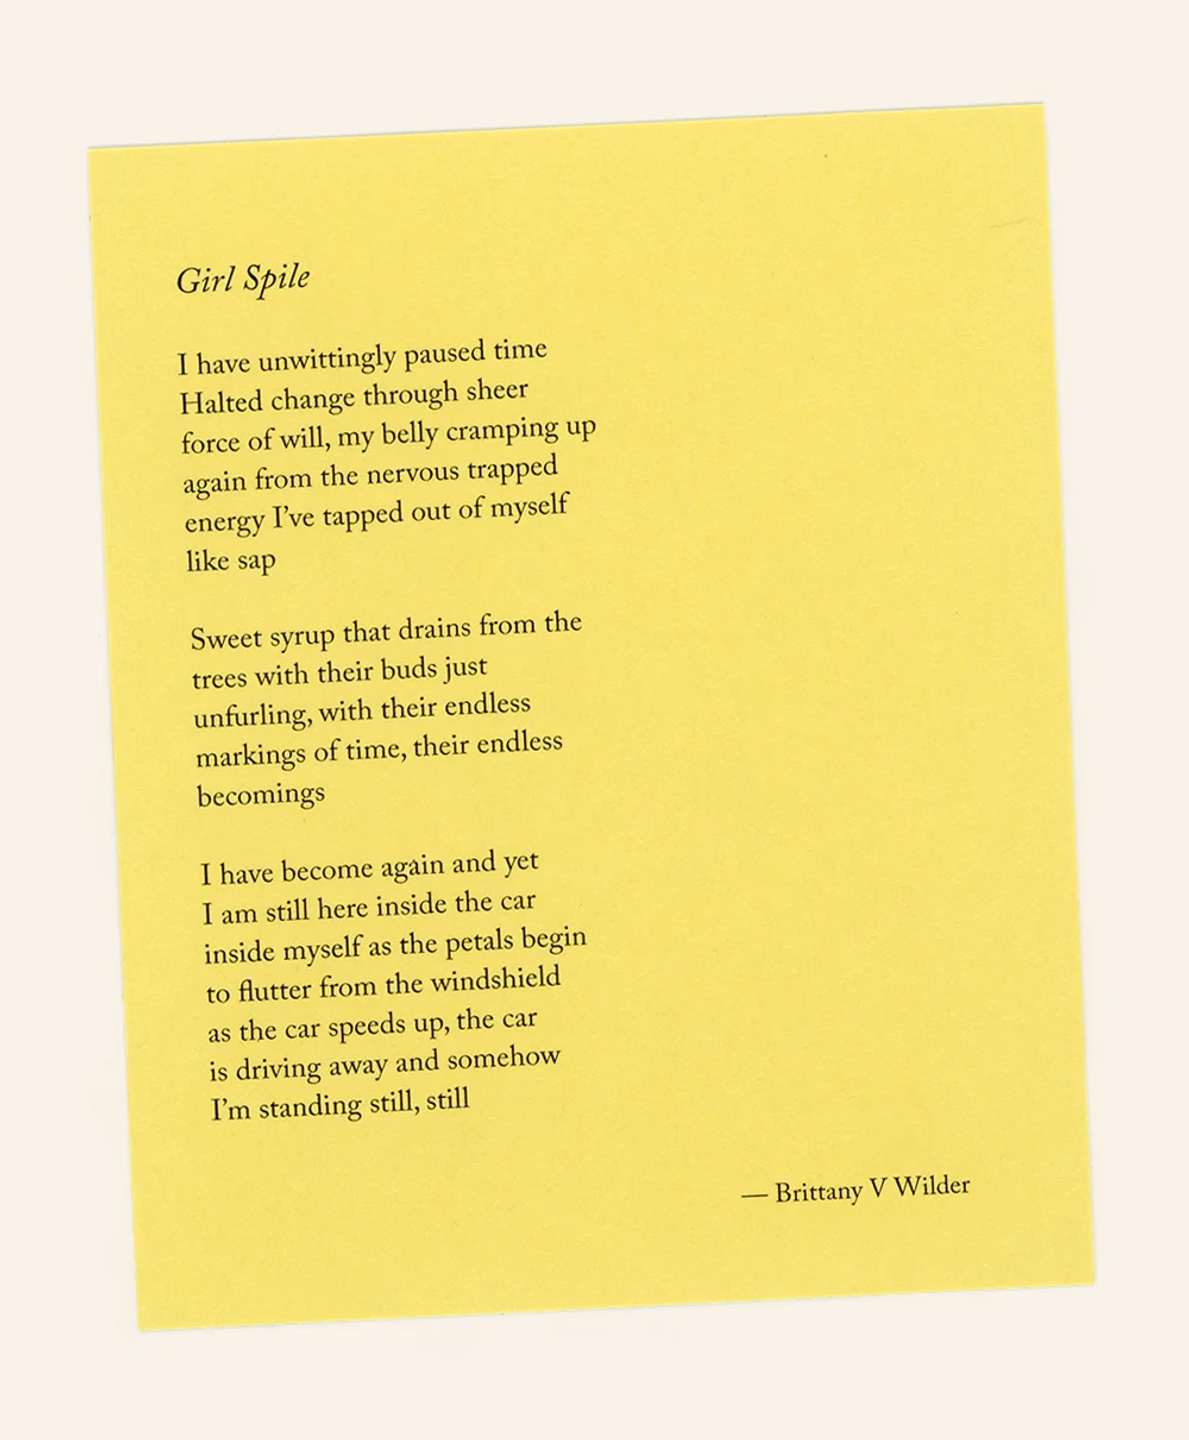 Girl Spile
I have unwittingly paused time
Halted change through sheer
force of will, my belly cramping up
again from the nervous trapped
energy I've tapped out of myself
like sap
Sweet syrup that drains from the
trees with their buds just
unfurling, with their endless
markings of time, their endless
becomings
I have become again and yet
I am still here inside the car
inside myself as the petals begin
to flutter from the windshield
as the car speeds up, the car
is driving away and somehow
I'm standing still, still
— Brittany V Wilder